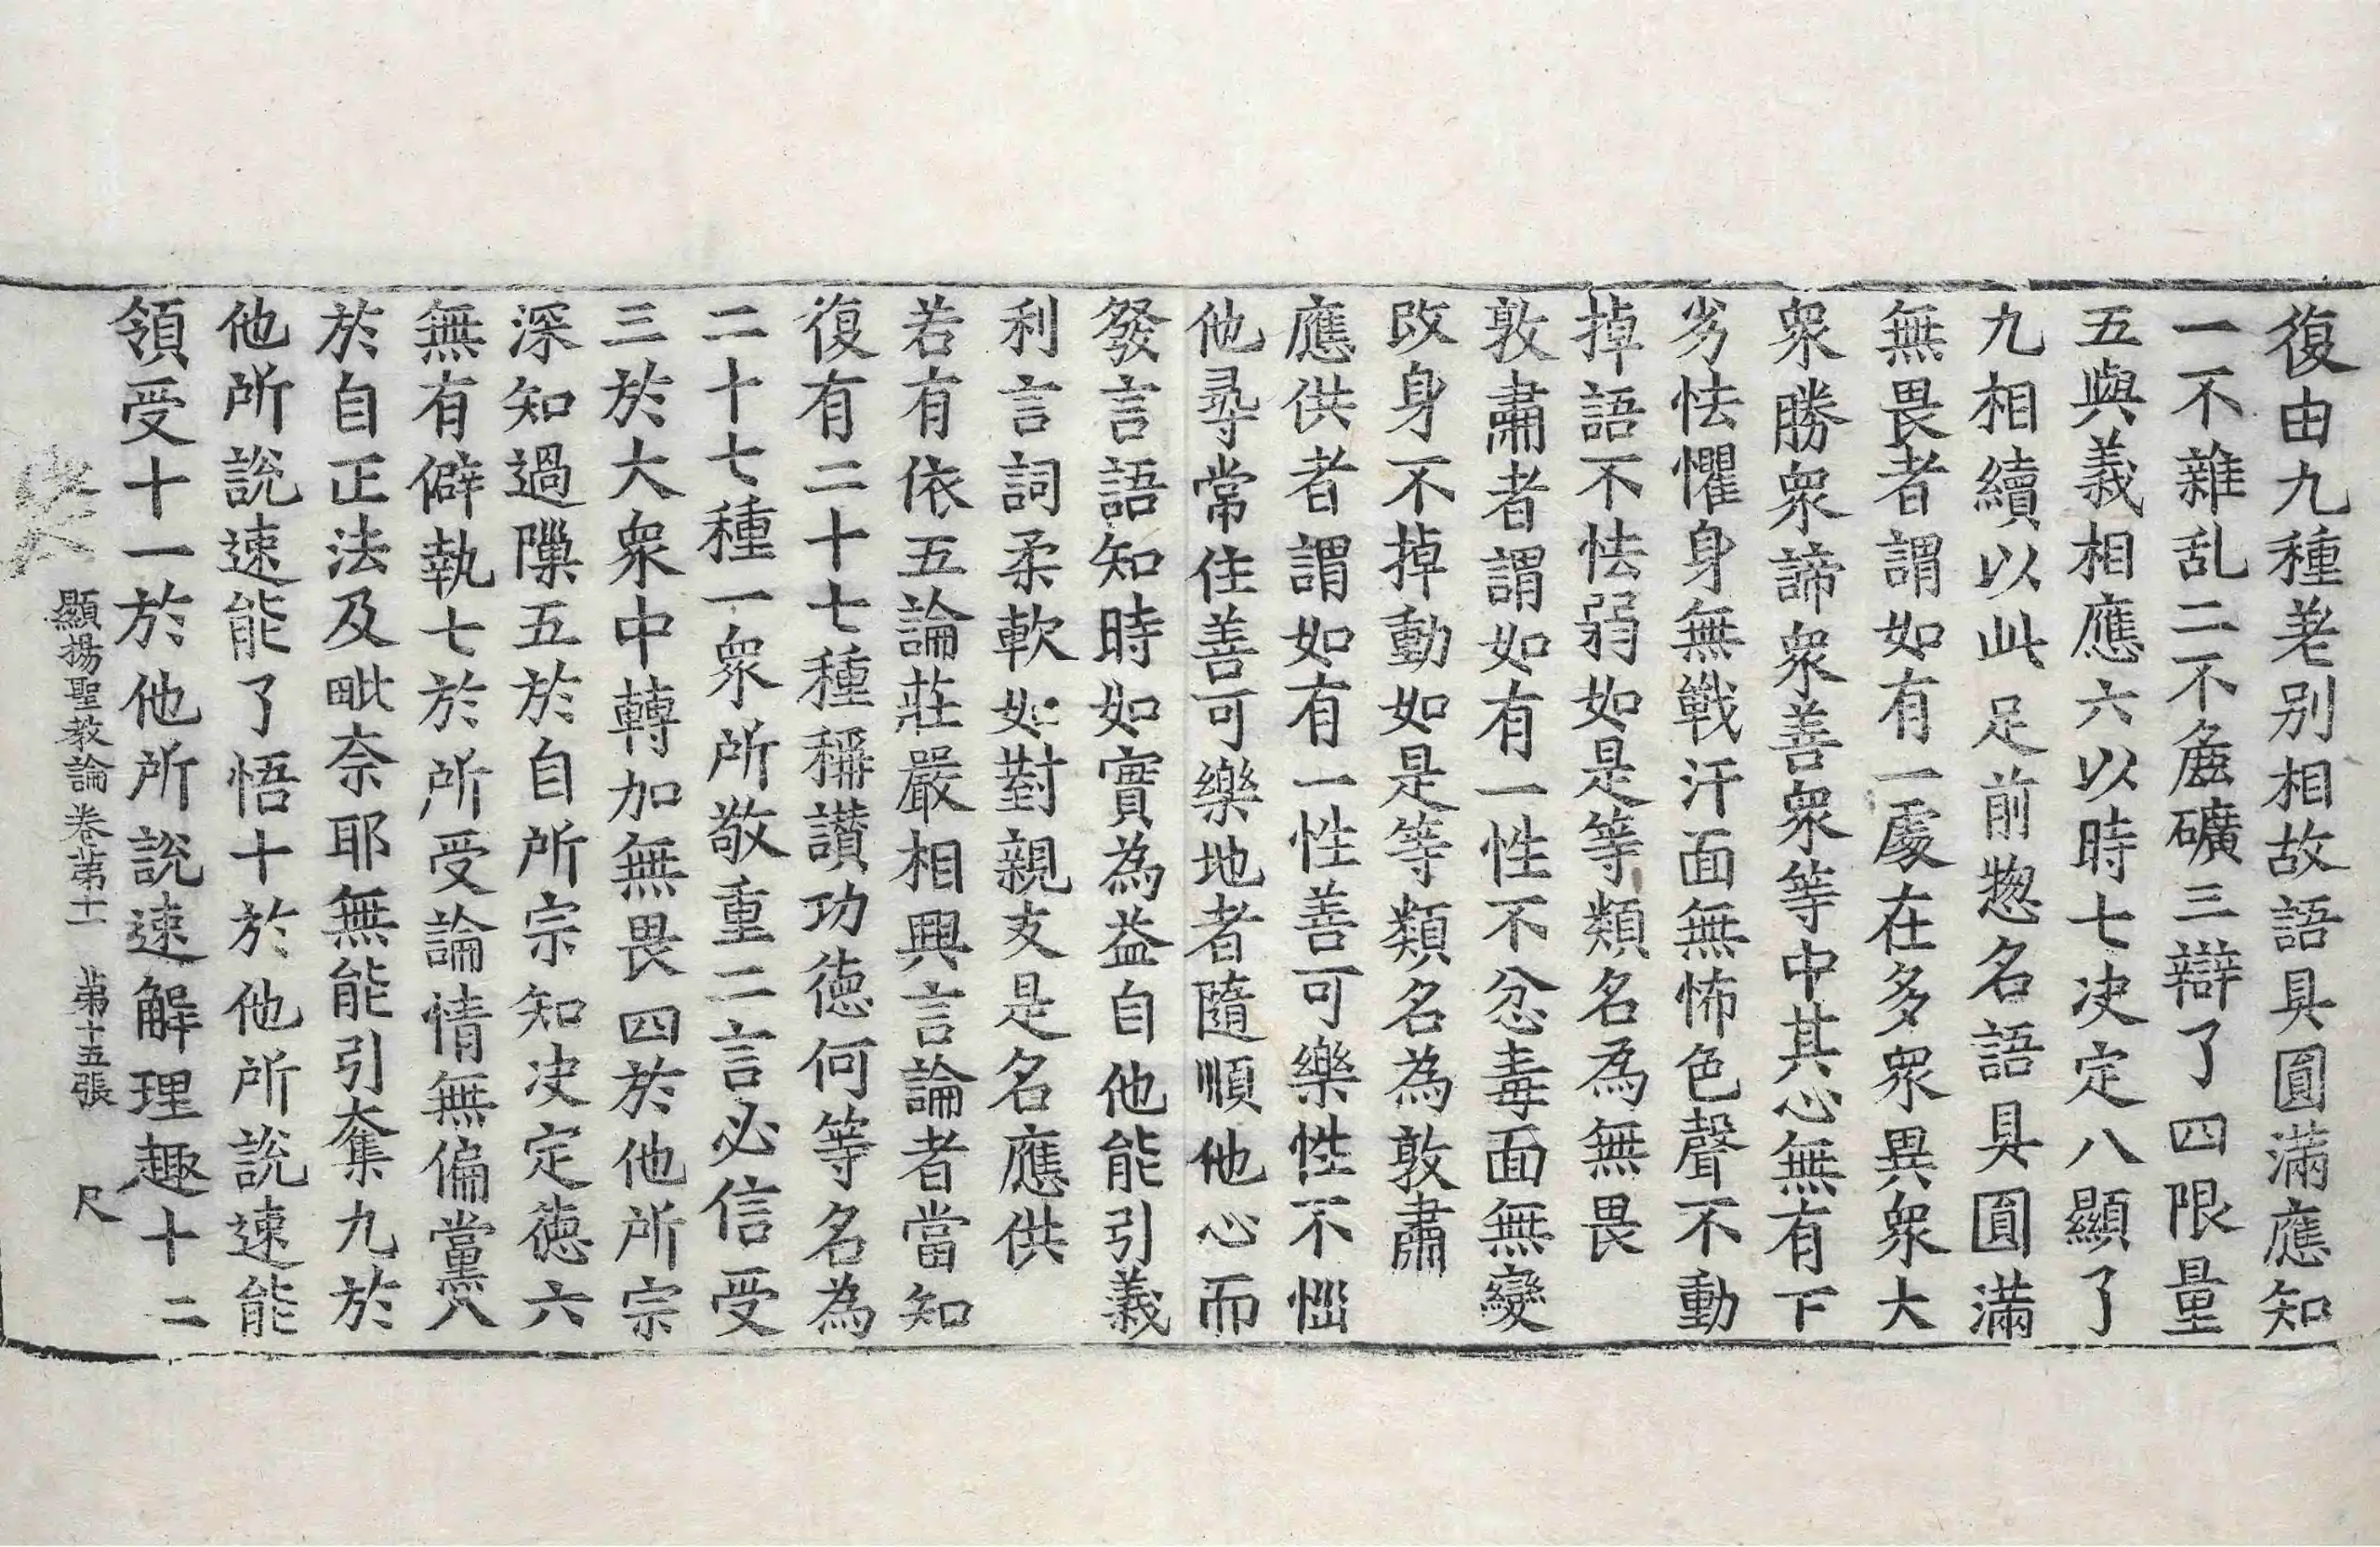 復由九種差別相故語具圓滿應知
一不雜乱二不麁礦三辯了四限量
五與義相應六以時七决定八顯了
九相續以此足前惣名語具圓滿
無畏者謂如有一處在多衆異衆大
衆勝衆諦衆善衆等中其心無有下
劣怯懼身無戰汗面無怖色聲不動
掉語不怯弱如是等類名為無畏
敦肅者謂如有一性不忿毒面無變
改身不掉動如是等類名為敦肅
應供者謂如有一性善可樂性不惱
他尋常住善可樂地者隨順他心而
發言語知時如實為益自他能引義
利言詞柔軟如對親友是名應供
若有依五論莊嚴相興言論者當知
復有二十七種稱讃功德何等名為
二十七種一衆所敬重二言必信受
三於大衆中轉加無畏四於他所宗
深知過隟五於自所宗知决定德六
無有僻執七於所受論情無偏黨八
於自正法及毗奈耶無能引奪九於
他所說速能了悟十於他所說速能
領受十一於他所說速解理趣十二
顯揚聖教論卷第十一 第十五張 尺